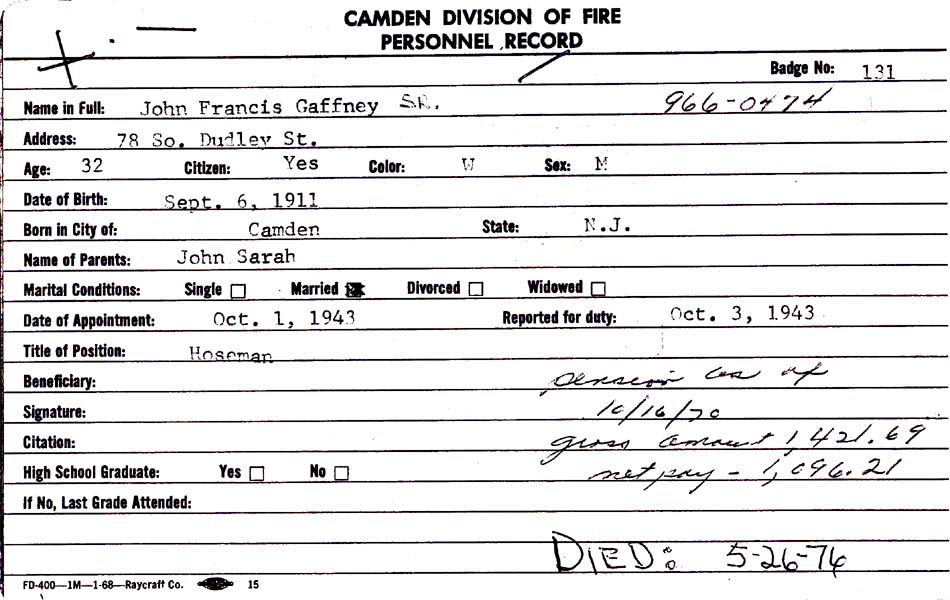 CAMDEN DIVISION OF FIRE
PERSONNEL RECORD
Badge No: 131
Name in Full: John Francis Gaffney SR. 966-0474
Address: 78 So. Dudley St.
Age: 32 Citizen: Yes Color: W Sex: M
Date of Birth: Sept. 6, 1911
Born in City of: Camden State: N.J.
Name of Parents: John Sarah
Marital Conditions: Single Married Divorced Widowed
Date of Appointment: Oct. 1, 1943 Reported for duty: Oct. 3, 1943
Title of Position: Hoseman
Beneficiary: pension as of
Signature: 10/16/70
Citation: gross amount 1,421.69
High School Graduate: Yes No net pay - 1,096.21
If No, Last Grade Attended:
DIED: 5-26-76
FD-400—1M—1-68—Raycraft Co. 15